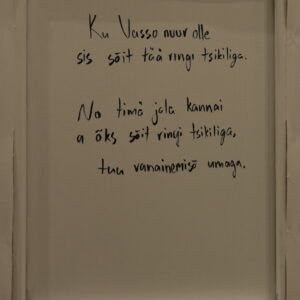 Ku Vasso nuur olle
sis sõit tää ringi tsikiliga.
No timä jala kannai
a õks sõit ringi tsikiliga,
tuu vanainemisõ umaga.